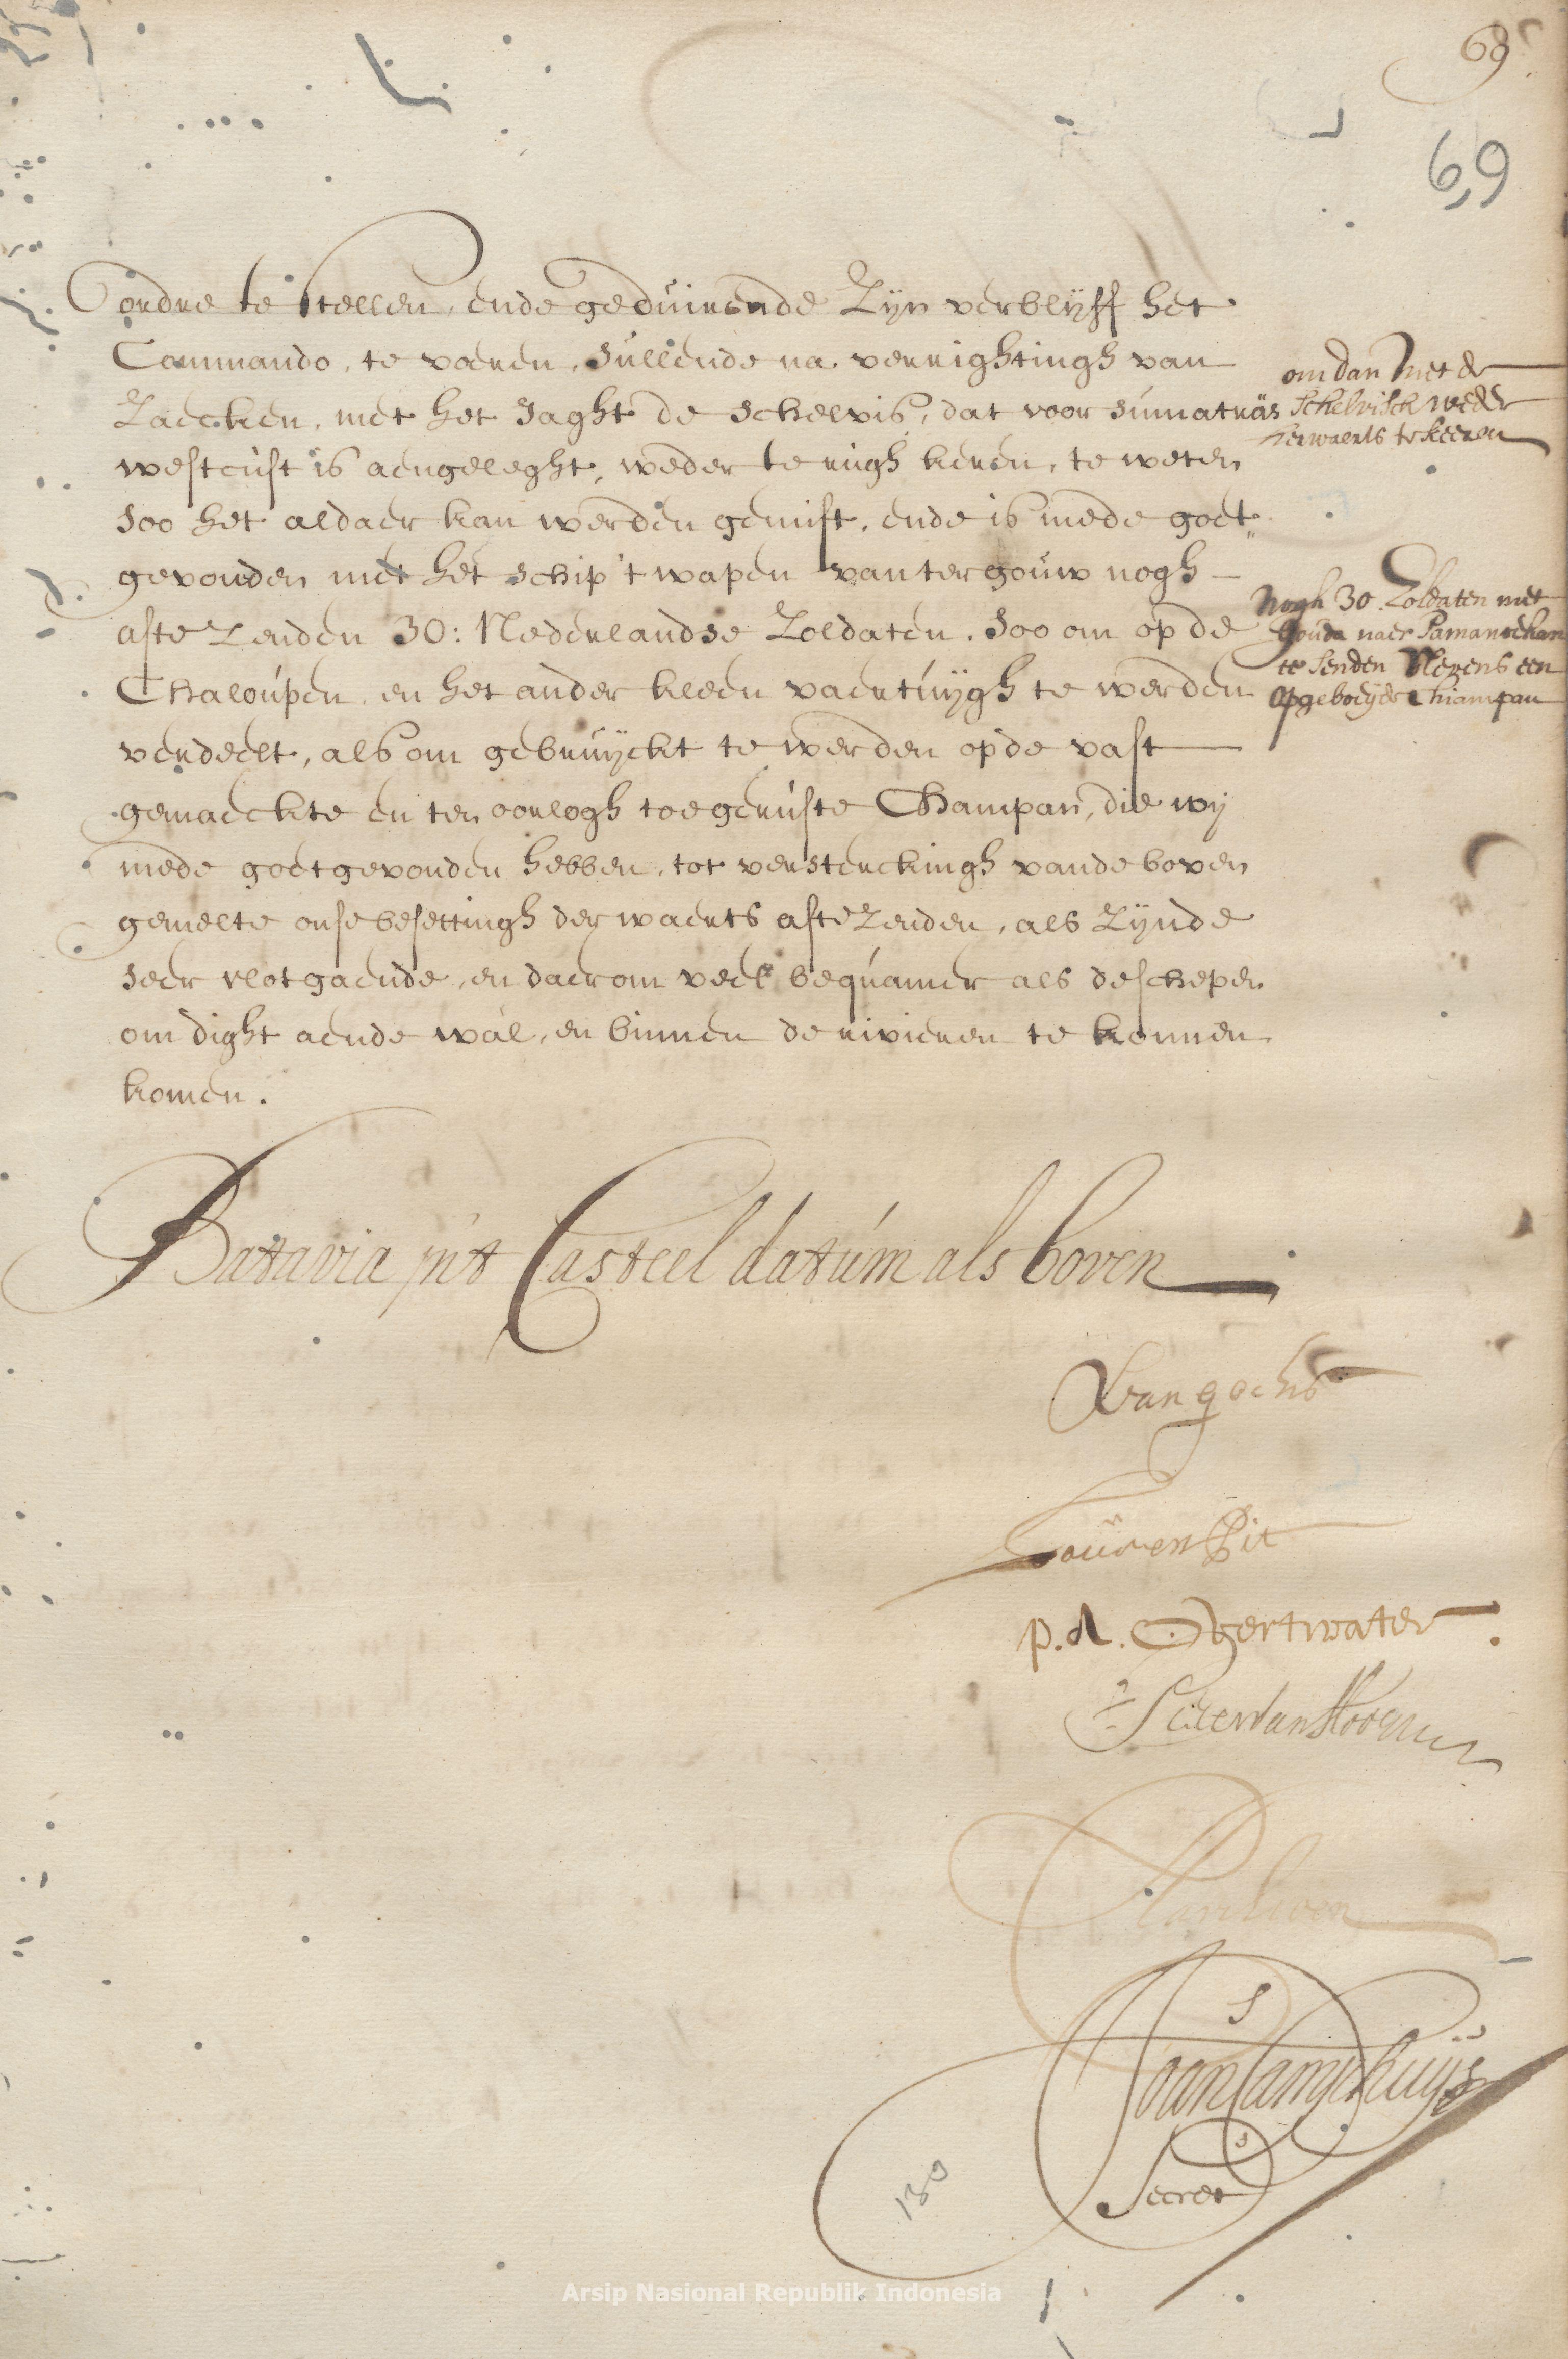 69
69
ordre te stellen, ende geduirende Zijn verblijff het
Commando, te voeren, sullende na verrightingh van
Zaecken, met het Jaght de Schelvis, dat voor Sumatras
westcust is aengeleght, weder te rugh keren, te weten
soo het aldaer kan werden gemist, ende is mede goet
gevonden met het schip 't wapen van ter gouw nogh
afte Zenden 30: Nederlandse Zoldaten, soo om op de
Chaloupen, en het ander kleen vaertuijgh te werden
verdeelt, als om gebruijckt te werden op de vast
gemaeckte en ten oorlogh toegeruste Champan, die wij
mede goetgevonden hebben, tot versterckingh vande boven
gemelte onse besettingh derwaerts afte Zenden, als Zijnde
seer vlot gaende, en daerom veel bequamer als de schepen
om dight aende wal, en binnen de rivieren te konnen
komen.
om dan met de
Schelvisch weder
herwaerts te keeren
Nogh 30. Zoldaten met
Gouda naer Pamanoekan
te senden Nevens een
Opgeboeijde Chiampan
Batavia int Casteel datum als boven
R van goens
Louren Pit
p. A. Overtwater
Pieter van Hoorn
Joan Camphuijs
Secret
130
Arsip Nasional Republik Indonesia